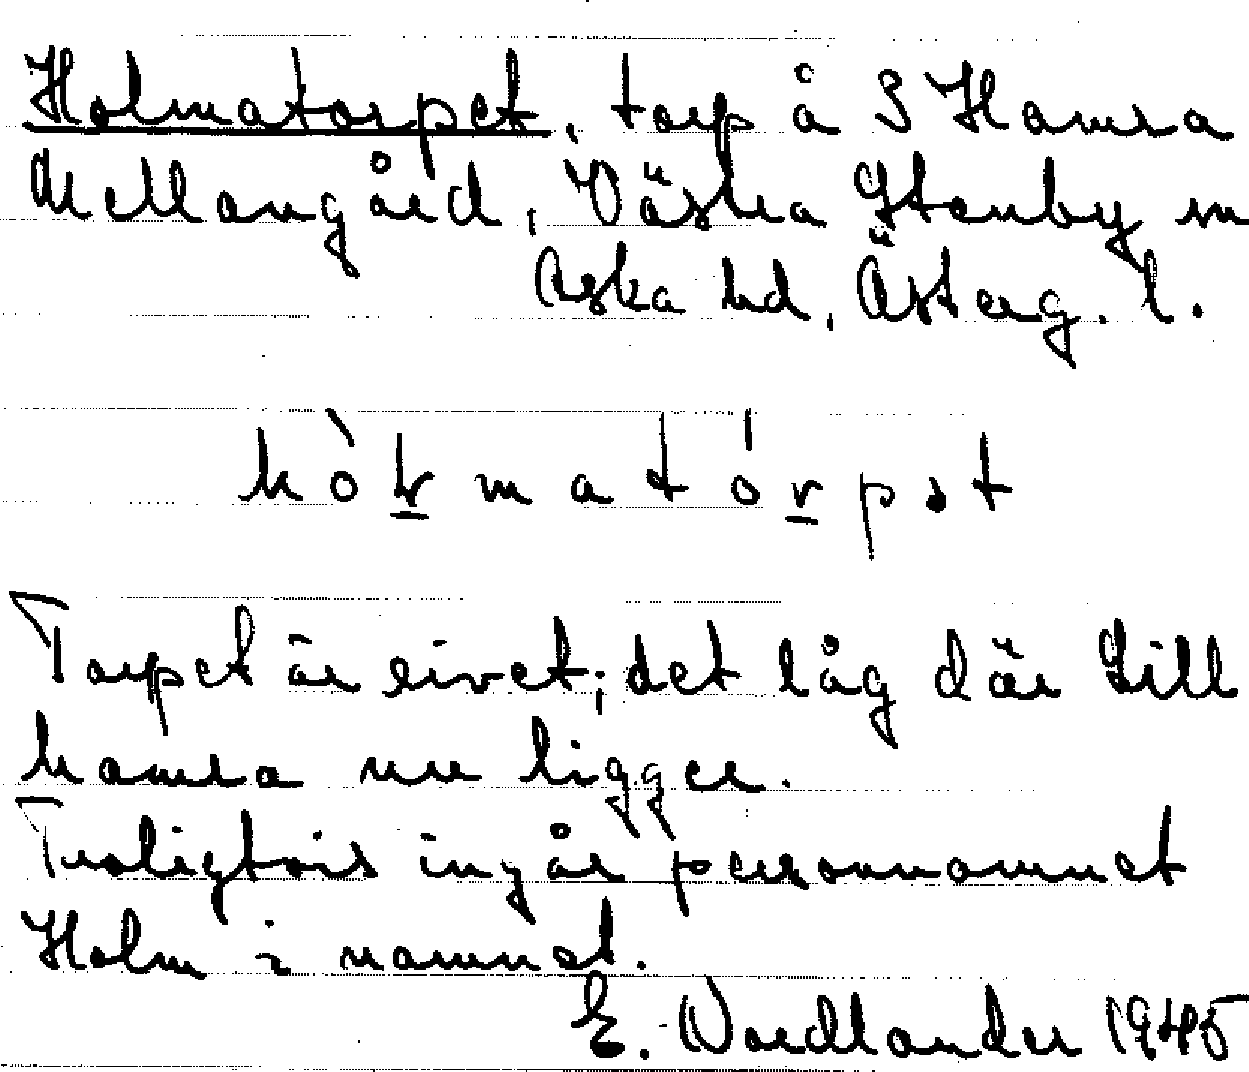 Holmatorpet, torp å S Hamra
Mellangård, Västra Stenby sn
Aska hd, Österg. l.
hòɫmatórpət
Torpet är rivet; det låg där Lill
hamra nu ligger.
Troligtvis ingår personnamnet
Holm i namnet.
E. Nordlander 1945